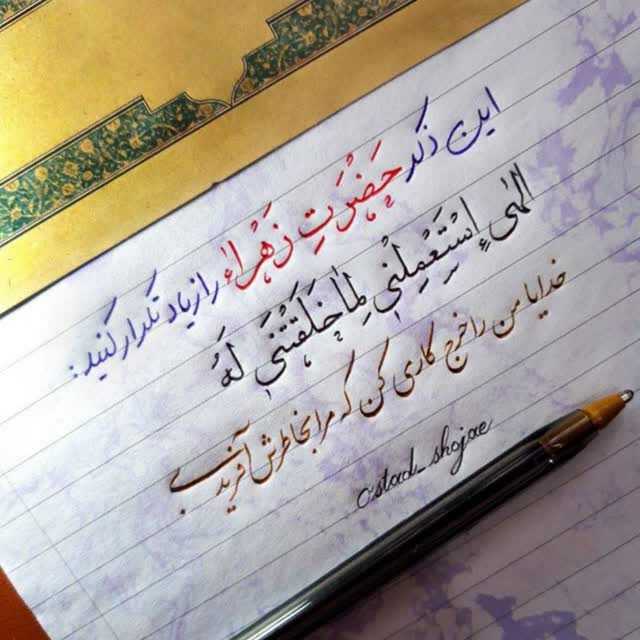 این ذکر حَضْرَتِ زَهْراء را زیاد تکرار کنید:
الهٰیِ اسْتَعْمِلْنیِ لِمٰا خَلَقْتَنیِ لَهُ
خدایا من را خرج کاری کن که مرا بخاطرش آفریدی
ostad_shojae